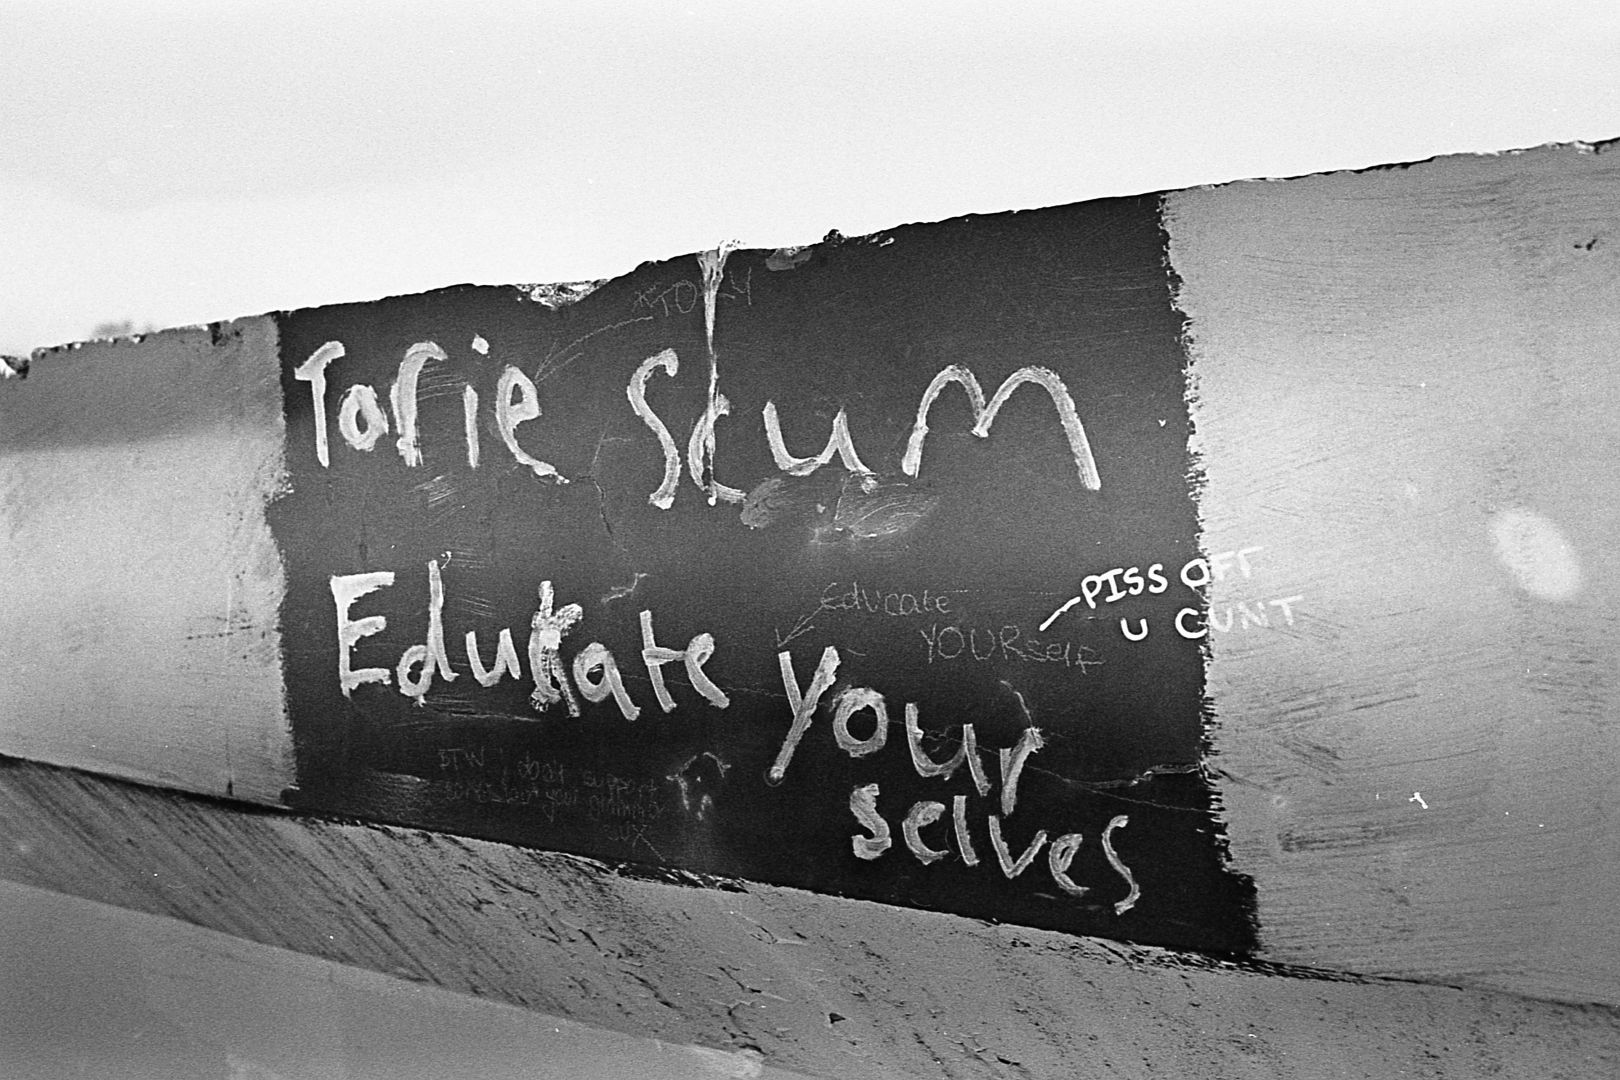 *TORY
Torie Scum
Edukate your
selves
Educate
YOURself
PISS OFF
U CUNT
BTW I don't support
your grammar